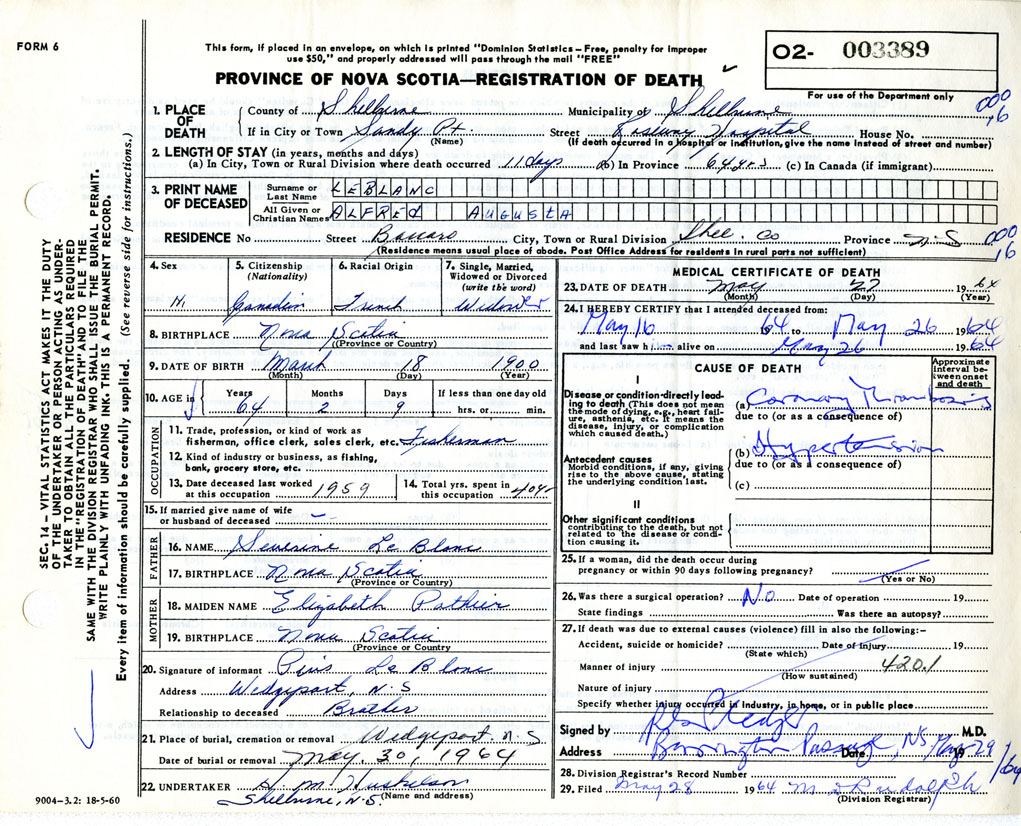 FORM 6
This form, if placed in an envelope, on which is printed "Dominion Statistics – Free, penalty for improper
use $50," and properly addressed will pass through the mail "FREE"
PROVINCE OF NOVA SCOTIA—REGISTRATION OF DEATH
O2- 003389
For use of the Department only
000
16
SEC. 14 – VITAL STATISTICS ACT MAKES IT THE DUTY
OF THE UNDERTAKER OR PERSON ACTING AS UNDER-
TAKER TO OBTAIN ALL THE PARTICULARS REQUIRED
IN THE "REGISTRATION OF DEATH" AND TO FILE THE
SAME WITH THE DIVISION REGISTRAR WHO SHALL ISSUE THE BURIAL PERMIT.
WRITE PLAINLY WITH UNFADING INK. THIS IS A PERMANENT RECORD.
Every item of information should be carefully supplied. (See reverse side for instructions.)
1. PLACE OF DEATH
County of Shelburne Municipality of Shelburne
If in City or Town Sandy Pt. Street Roseway Hospital House No.
(Name) (If death occurred in a hospital or institution, give the name instead of street and number)
2. LENGTH OF STAY (in years, months and days)
(a) In City, Town or Rural Division where death occurred 11 days (b) In Province 64 yrs (c) In Canada (if immigrant)
3. PRINT NAME OF DECEASED
Surname or Last Name LEBLANC
All Given or Christian Names ALFRED AUGUSTA
RESIDENCE No Street City, Town or Rural Division Shel. Co Province N-S
000
16
(Residence means usual place of abode. Post Office Address for residents in rural parts not sufficient)
4. Sex
5. Citizenship (Nationality) Canadian
6. Racial Origin French
7. Single, Married, Widowed or Divorced (write the word) Widower
8. BIRTHPLACE Nova Scotia
(Province or Country)
9. DATE OF BIRTH March 18 1900
(Month) (Day) (Year)
10. AGE in Years 64 Months 2 Days 9 If less than one day old hrs. or min.
OCCUPATION
11. Trade, profession, or kind of work as
fisherman, office clerk, sales clerk, etc. Fisherman
12. Kind of industry or business, as fishing,
bank, grocery store, etc.
13. Date deceased last worked at this occupation 1959
14. Total yrs. spent in this occupation 40 yr
15. If married give name of wife
or husband of deceased
FATHER
16. NAME Severine Le Blanc
17. BIRTHPLACE Nova Scotia
(Province or Country)
MOTHER
18. MAIDEN NAME Elizabeth
19. BIRTHPLACE Nova Scotia
(Province or Country)
20. Signature of informant Pius Le Blanc
Address Wedgeport, N.S
Relationship to deceased Brother
21. Place of burial, cremation or removal Wedgeport N.S
Date of burial or removal May 30, 1964
22. UNDERTAKER
Shelburne, N.S. (Name and address)
9004–3.2: 18-5-60
MEDICAL CERTIFICATE OF DEATH
23. DATE OF DEATH May 27 1964
(Month) (Day) (Year)
24. I HEREBY CERTIFY that I attended deceased from:
May 16 1964 to May 26 1964
and last saw him alive on May 26 1964
CAUSE OF DEATH
Approximate interval between onset and death
I
Disease or condition directly lead-
ing to death (This does not mean
the mode of dying, e.g., heart fail-
ure, asthenia, etc. It means the
disease, injury, or complication
which caused death.)
(a) Coronary Thrombosis
due to (or as a consequence of)
Antecedent causes
Morbid conditions, if any, giving
rise to the above cause, stating
the underlying condition last.
(b) Hypertension
due to (or as a consequence of)
(c)
II
Other significant conditions
contributing to the death, but not
related to the disease or condi-
tion causing it.
25. If a woman, did the death occur during
pregnancy or within 90 days following pregnancy?
(Yes or No)
26. Was there a surgical operation? No Date of operation 19
State findings Was there an autopsy?
27. If death was due to external causes (violence) fill in also the following:–
Accident, suicide or homicide? Date of injury 19
(State which)
Manner of injury 420.1
(How sustained)
Nature of injury
Specify whether injury occurred in industry, in home, or in public place
Signed by M.D.
Address Barrington Passage, NS Date May 29 19/64
28. Division Registrar's Record Number
29. Filed May 28 1964
(Division Registrar)